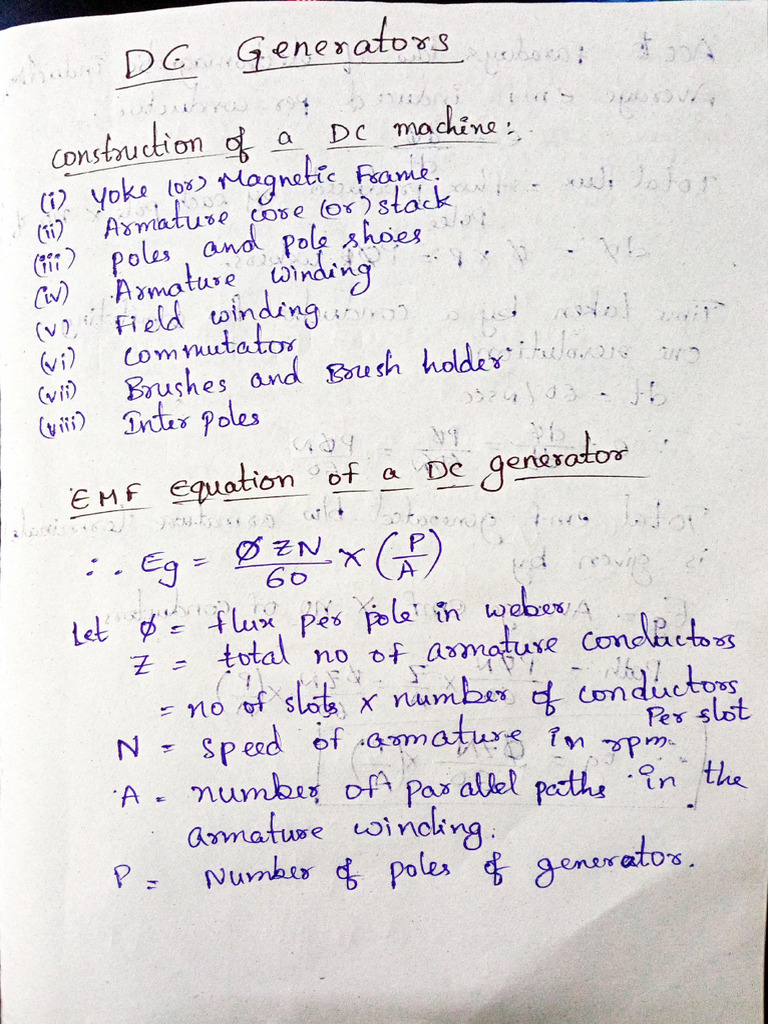 DC Generators
Construction of a DC machine:
(i) Yoke (or) Magnetic Frame.
(ii) Armature core (or) stack
(iii) poles and pole shoes
(iv) Armature winding
(v) Field winding
(vi) Commutator
(vii) Brushes and Brush holder
(viii) Inter poles
EMF equation of a DC generator
∴ Eg = ØZN/60 × (P/A)
Let Ø = flux per pole in weber
Z = total no of armature conductors
= no of slots × number of conductors
Per slot
N = speed of armature in rpm.
A = number of parallel paths in the
armature winding.
P = Number of poles of generator.